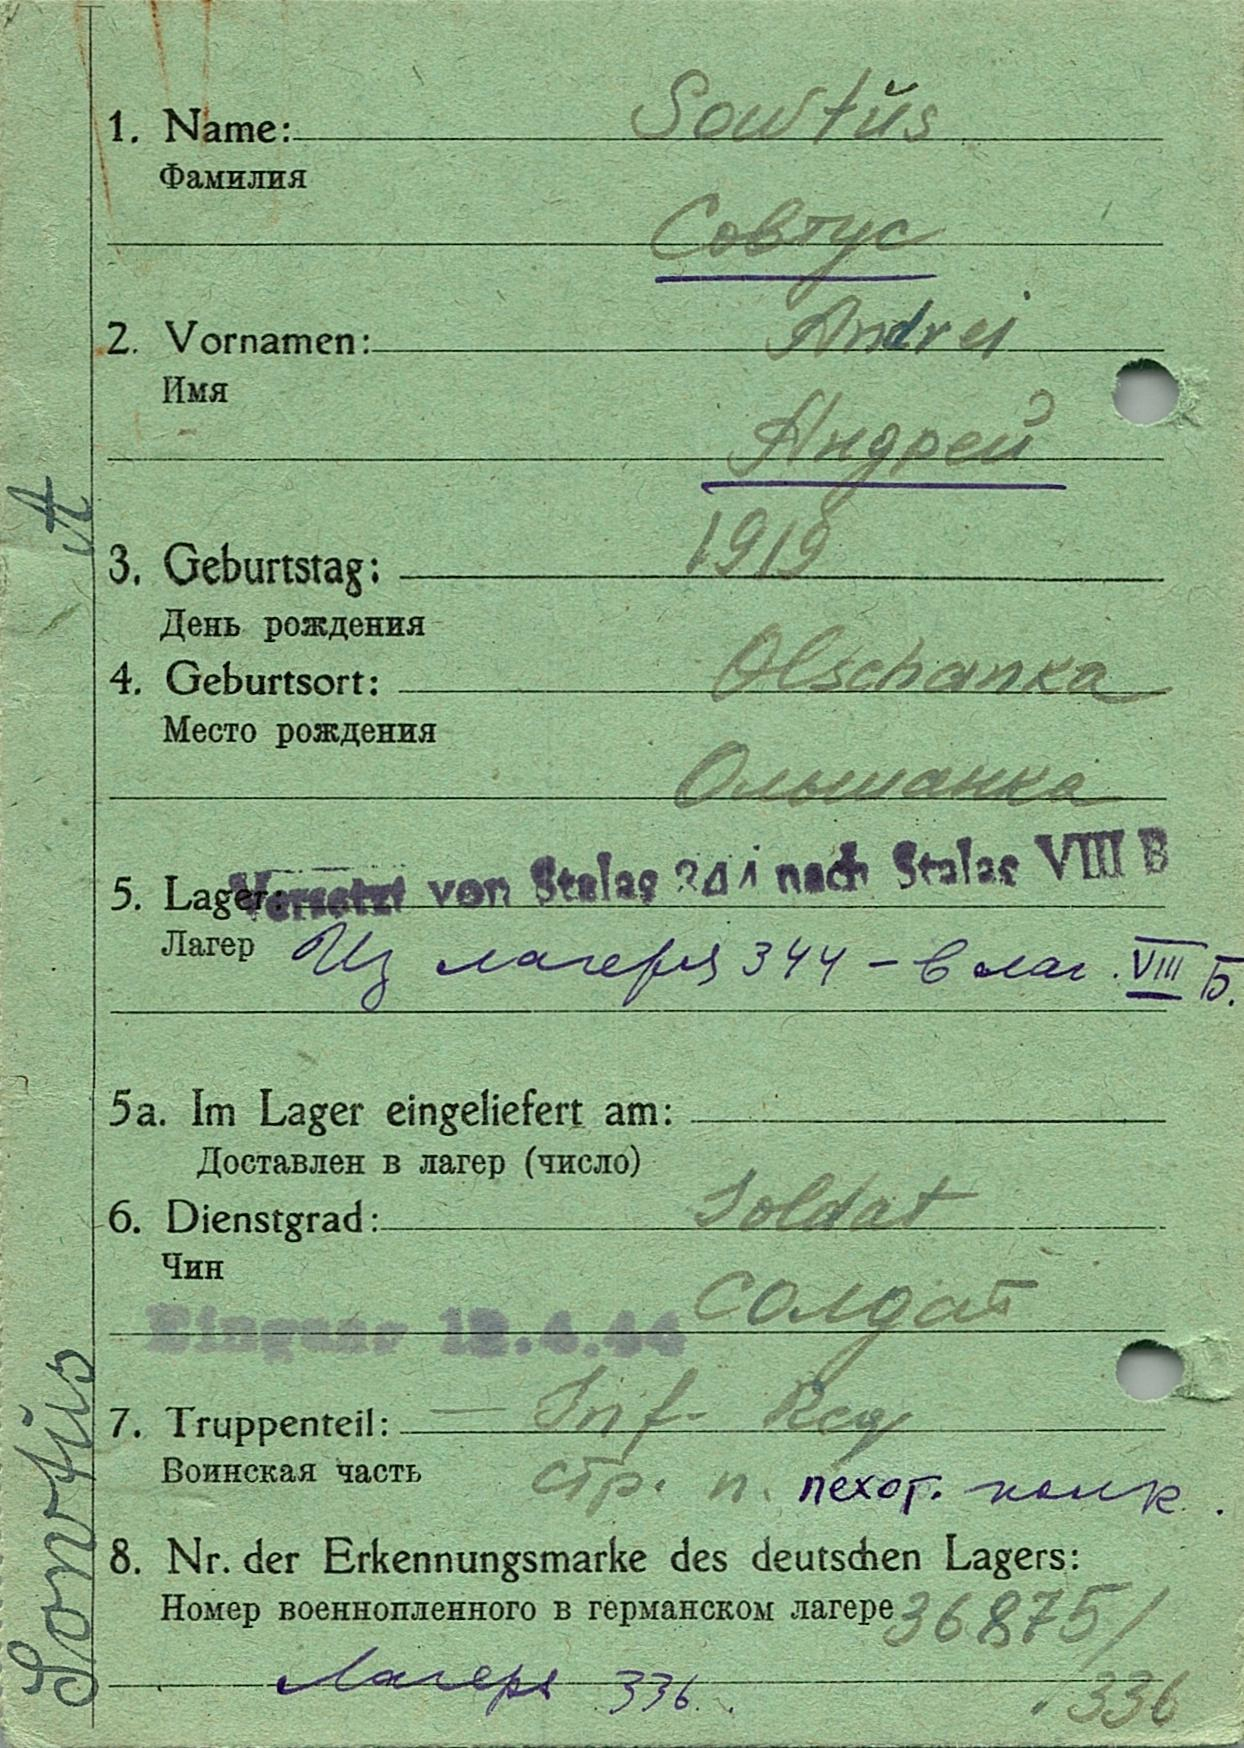 1. Name: Sowtŭs
Фамилия
Совтус
2. Vornamen: Andrei
Имя
Андрей
3. Geburtstag: 1919
День рождения
4. Geburtsort: Olschanka
Место рождения
Ольшанка
5. Lager: Versetzt von Stalag 344 nach Stalag VIII B
Лагер Из лагеря 344 – в лаг. VIII Б.
5a. Im Lager eingeliefert am:
Доставлен в лагер (число)
6. Dienstgrad: Soldat
Чин
солдат
Eingang 12.4.44
7. Truppenteil: — Inf. Reg
Воинская часть стр. п. пехот. полк.
8. Nr. der Erkennungsmarke des deutschen Lagers:
Номер военнопленного в германском лагере 36875/
Лагерь 336. 336
Sowtŭs A